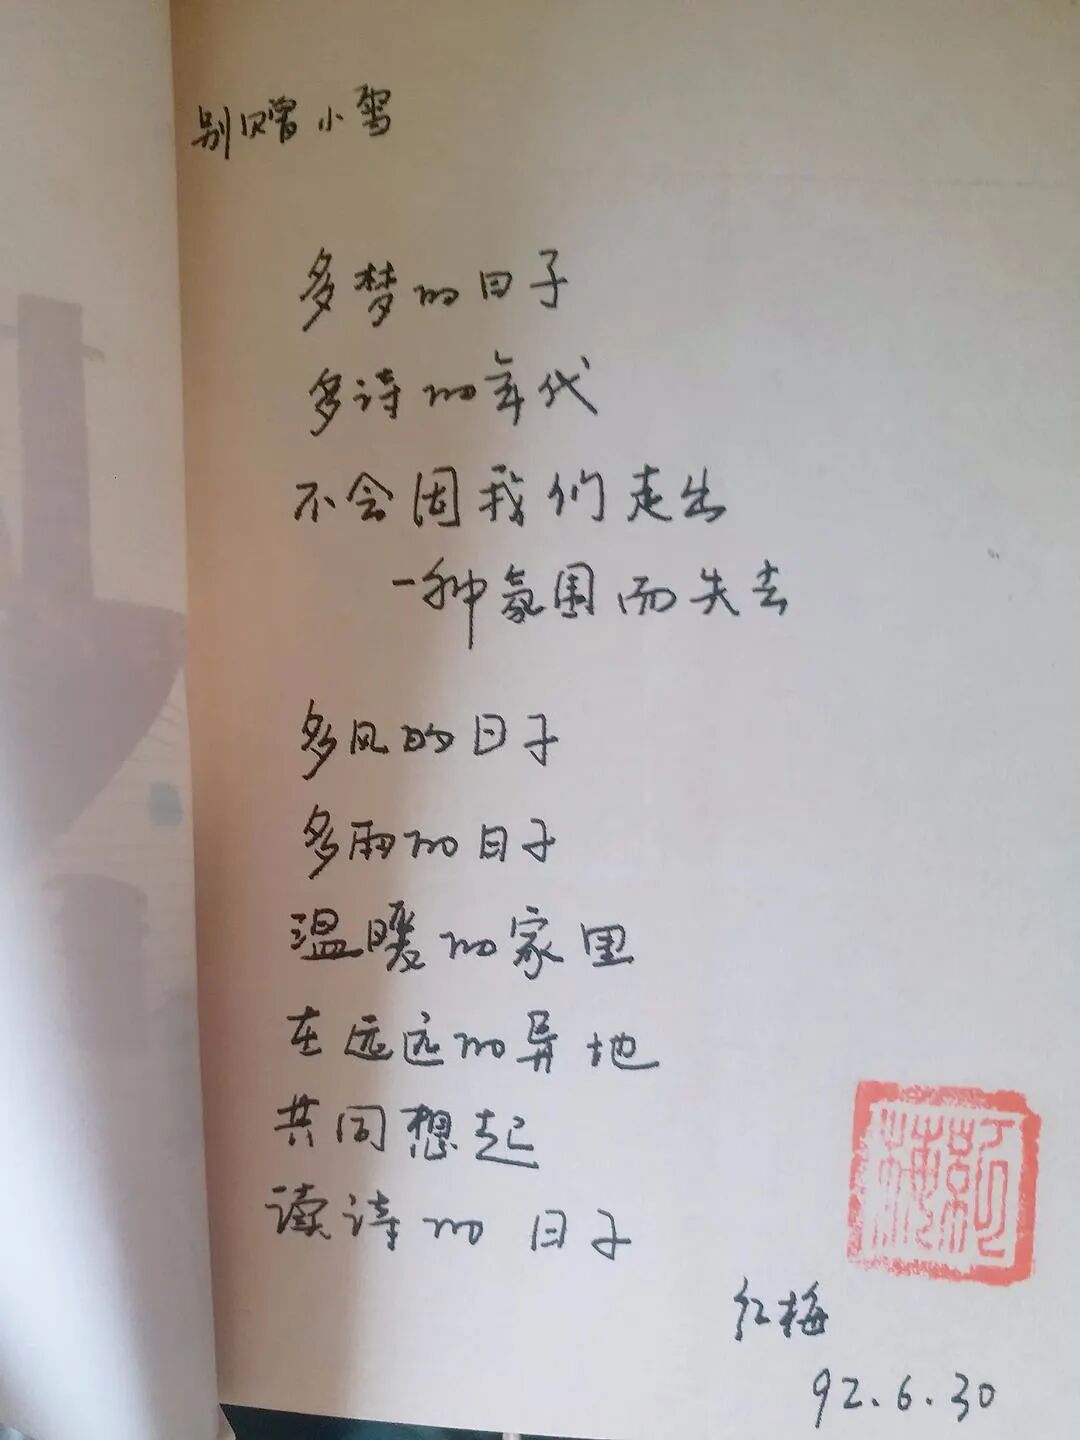 别赠小雪
多梦的日子
多诗的年代
不会因我们走出
一种氛围而失去
多风的日子
多雨的日子
温暖的家里
在远远的异地
共同想起
读诗的日子
红梅
92.6.30